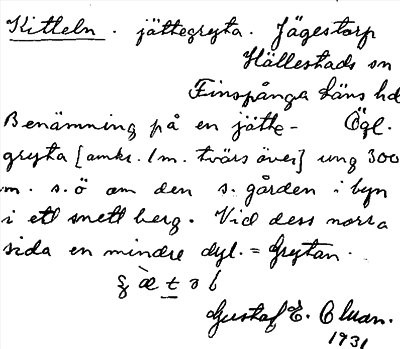 Kitteln. jättegryta. Jägestorp
Hällestads sn
Finspånga läns hd
Benämning på en jätte- Ögl.
gryta [omkr. 1 m. tvärs över] ung 300
m. s.ö om den s. gården i byn
i ett snett berg. Vid dess norra
sida en mindre dyl. = Grytan.
Gustaf E.
1931